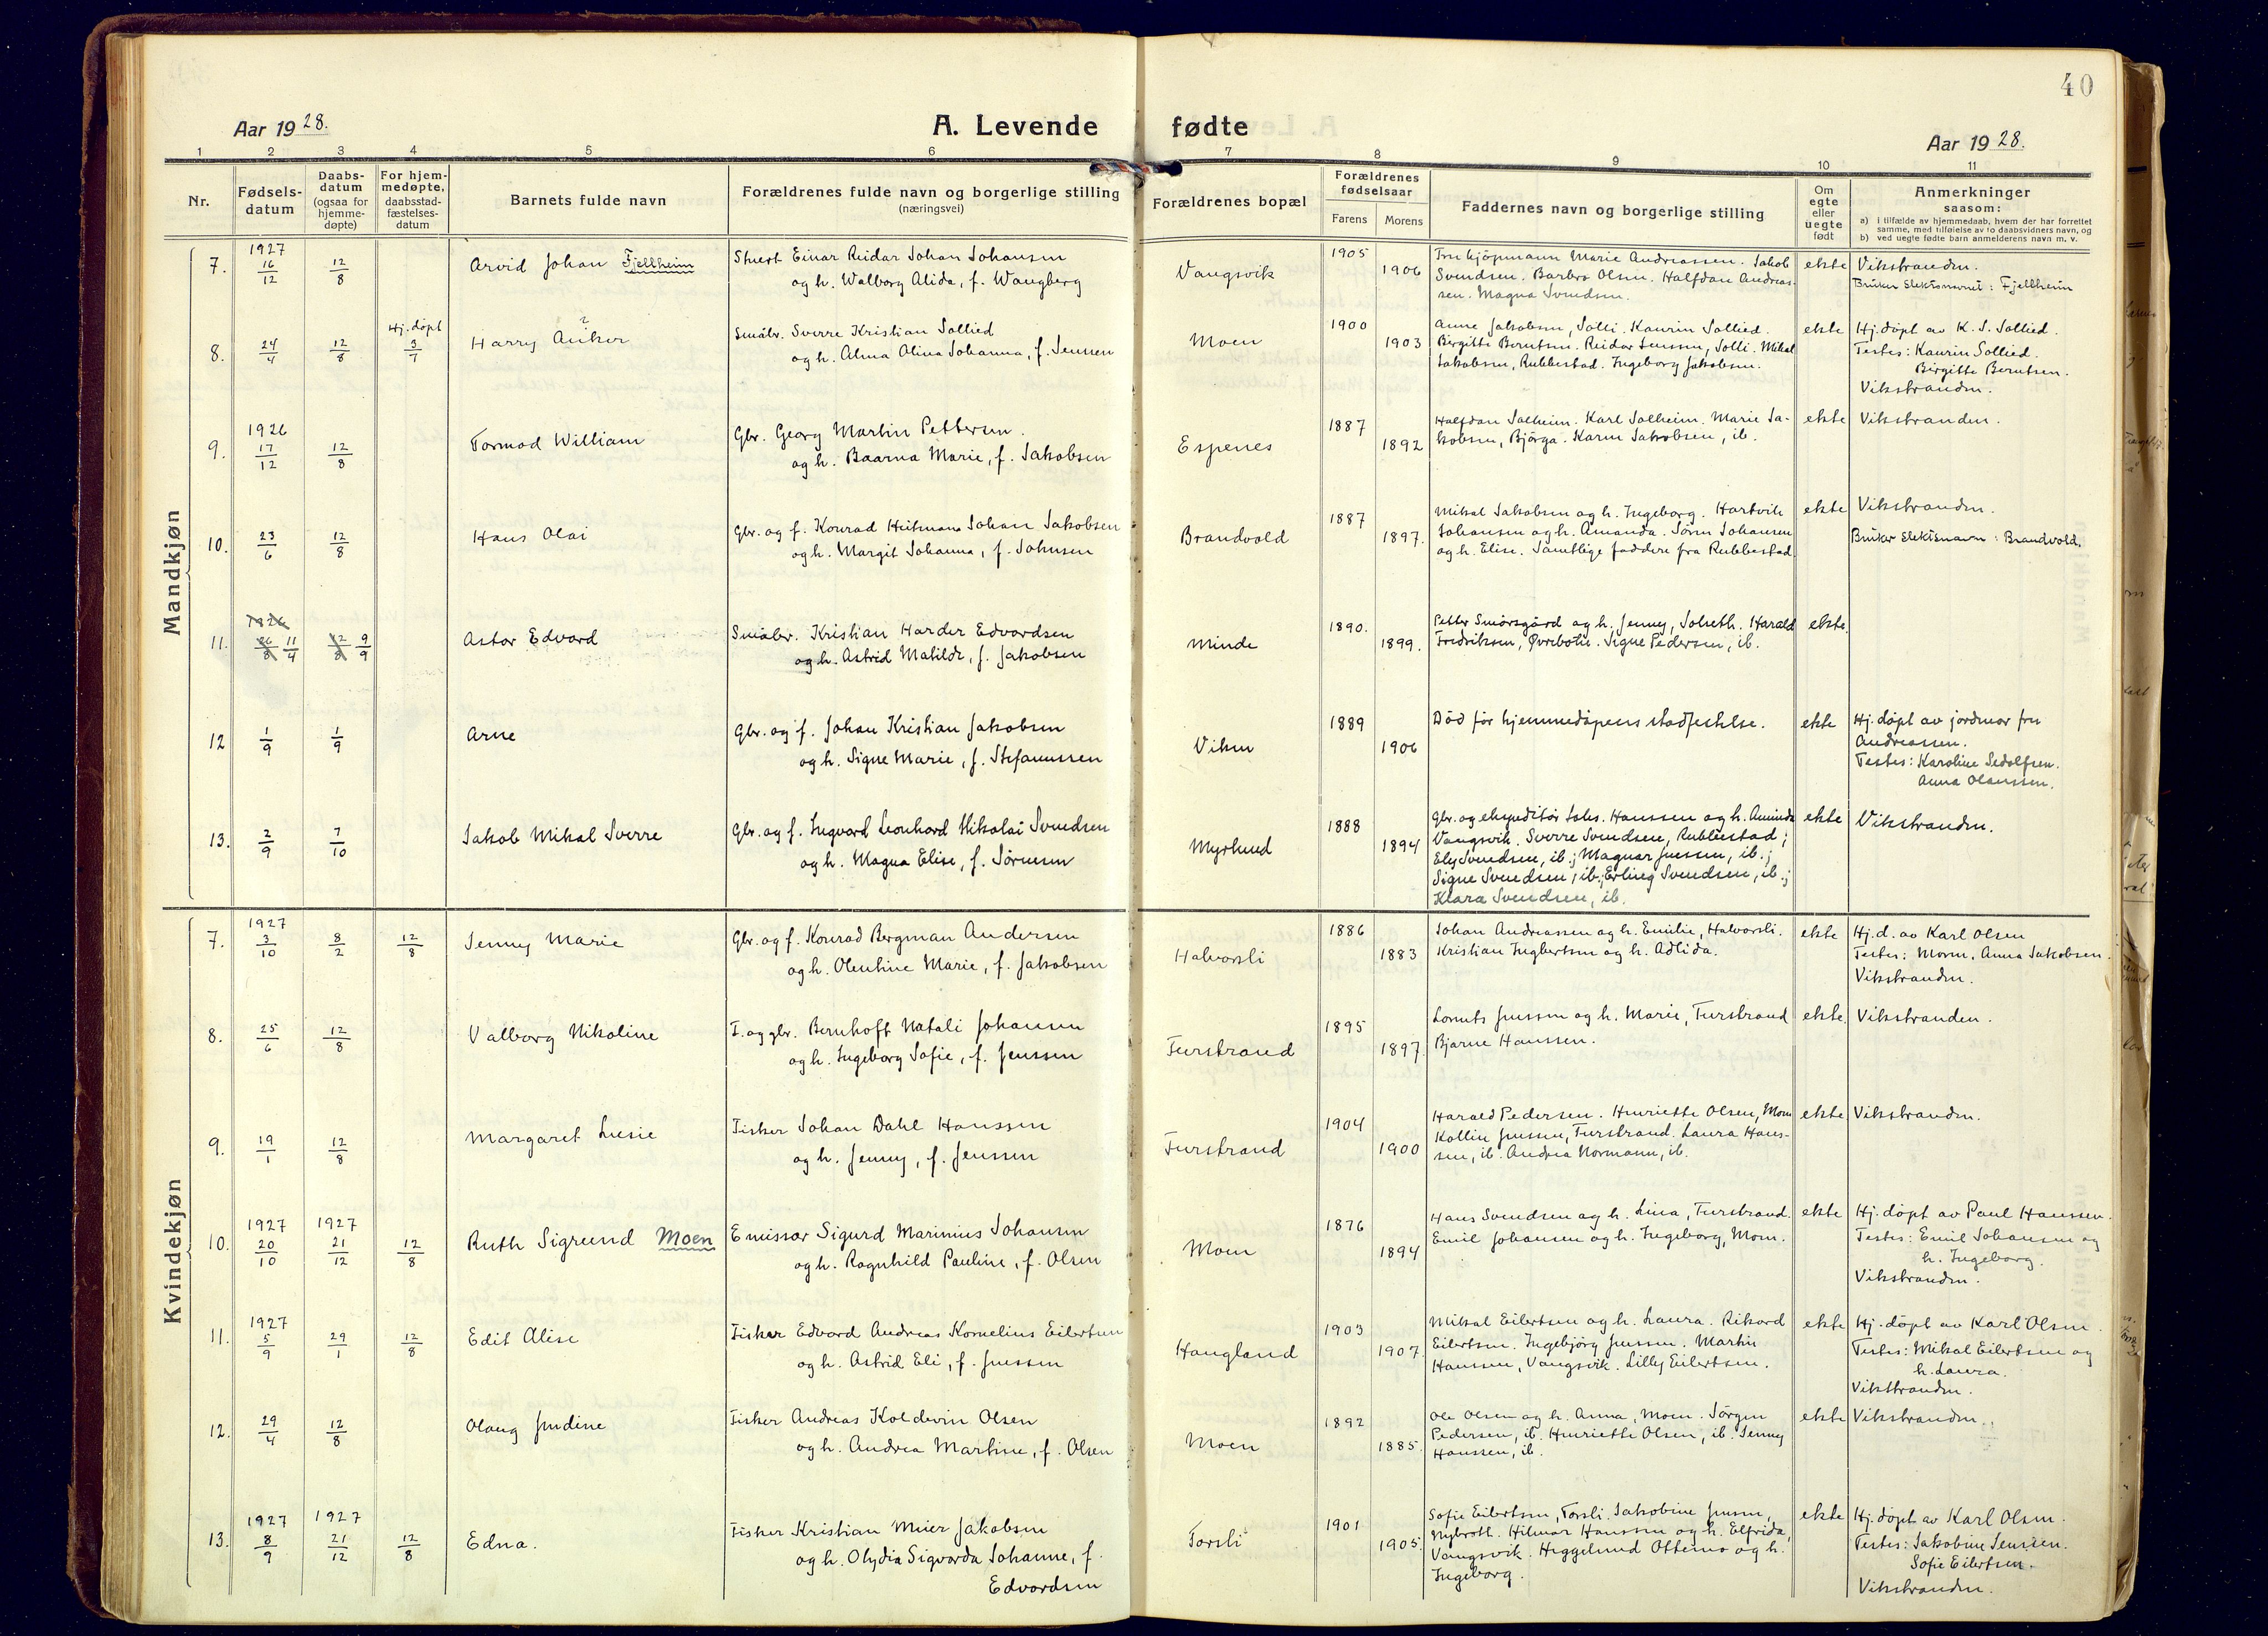 40
Aar 1928.
A. Levende fødte
Aar 1928.
1 2 3 4 5 6 7 8 9 10 11
Nr.
Fødsels-
datum
Daabs-
datum
(ogsaa for
hjemme-
døpte)
For hjem-
medøpte,
daabsstad-
fæstelses-
datum
Barnets fulde navn
Forældrenes fulde navn og borgerlige stilling
(næringsvei)
Forældrenes bopæl
Forældrenes
fødselsaar
Farens Morens
Faddernes navn og borgerlige stilling
Om
egte
eller
uegte
født
Anmerkninger
saasom:
a) i tilfælde av hjemmedaab, hvem der har forrettet
samme, med tilføielse av to daabsvidners navn, og
b) ved uegte fødte barn anmelderens navn m. v.
Mandkjøn
7. 1927 16/12 12/8 Arvid Johan Fjellheim
Einar Reidar Johan Johansen
og h. Walborg Alida, f. Wangberg
Vangsvik 1905 1906
Fru kjøpmann Marie Andreassen. Jakob
Svendsen. Barbro Olsen. Halfdan Andreas-
sen. Magna Svendsen.
ekte
Vikstranden.
Bruker slektsnavnet: Fjellheim
8. 24/4 12/8 Hj. døpt 3/7 Harry Anker
Småbr. Sverre Kristian Sollied
og h. Alma Olina Johanna, f. Jenssen
Moen 1900 1903
Anne Jakobsen, Solli. Kaurin Sollied.
Birgitte Berntsen. Reidar Jenssen, Solli. Mikal
Jakobsen, Rubbestad. Ingeborg Jakobsen.
ekte
Hj. døpt av K. S. Sollied.
Testes: Kaurin Sollied.
Birgitte Berntsen.
Vikstranden.
9. 1926 17/12 12/8 Tormod William
Gbr. Georg Martin Pettersen.
og h. Baarna Marie, f. Jakobsen
Espenes 1887 1892
Halfdan Solheim. Karl Solheim. Marie Ja-
kobsen, Bjorga. Karen Jakobsen, ib.
ekte
Vikstranden.
10. 23/6 12/8 Hans Olai
Gbr. og f. Konrad Heitmann Johan Jakobsen
og h. Margit Johanna, f. Johnsen
Brandvold 1887 1897.
Mikal Jakobsen og h. Ingeborg. Hartvik
Johansen og h. Amanda. Sören Johansen
og h. Elise. Samtlige faddere fra Rubbestad
ekte
Vikstranden.
Bruker slektsnavn: Brandvold.
11. 1926 26/8 11/4 12/8 9/9 Astor Edvard
Småbr. Kristian Harder Edvardsen
og h. Astrid Matilde, f. Jakobsen
Minde 1890. 1899.
Petter Smörsgård og h. Jenny, Solneth. Harald
Fredriksen, Øvrebotn. Signe Pedersen, ib.
ekte.
12 1/9 1/9 Arne
Gbr. og f. Johan Kristian Jakobsen
og h. Signe Marie, f. Stefanussen
Viken 1889 1906
Död før hjemmedåpens stadfestelse.
ekte
Hj. døpt av jordmor fru
Andreassen.
Testes: Karoline Sedolfsen.
Anna Olaussen.
13. 2/9 7/10 Jakob Mikal Sverre
Gbr. og f. Ingvard Leonhard Nikolai Svendsen
og h. Magna Elise, f. Sörensen
Myrlund 1888 1894
Gbr. og ekspeditør Johs. Hanssen og h. Aminda
Vangsvik. Sverre Svendsen, Rubbestad;
Ely Svendsen, ib.; Magnar Jenssen, ib.;
Signe Svendsen, ib.; Erling Svendsen, ib.;
Klara Svendsen, ib.
ekte
Vikstranden.
Kvindekjøn
7. 1927 3/10 8/2 12/8 Jenny Marie
Gbr. og f. Konrad Bergman Andersen
og h. Olentine Marie, f. Jakobsen
Halvorsli 1886 1883
Johan Andreassen og h. Emilie, Halvorsli.
Kristian Ingbertsen og h. Adlida.
ekte
Hj. d. av Karl Olsen
Testes: Moren, Anna Jakobsen.
Vikstranden.
8. 25/6 12/8 Valborg Nikoline
F. og gbr. Bernhoft Natali Johansen
og h. Ingeborg Sofie, f. Jenssen
Furstrand 1895 1897.
Lornts Jenssen og h. Marie, Furstrand
Bjarne Hanssen.
ekte.
Vikstranden.
9. 19/1 12/8 Margaret Lusie
Fisker Johan Dahl Hanssen
og h. Jenny, f. Jenssen
Furstrand 1904 1900
Harald Pedersen. Henriette Olsen, Moen
Kollin Jenssen, Furstrand. Laura Hans-
sen, ib. Andrea Normann, ib.
ekte
Vikstranden.
10. 1927 20/10 1927 21/12 12/8 Ruth Sigrund Moen
Emissær Sigurd Marinius Johansen
og h. Ragnhild Pauline, f. Olsen
Moen 1876 1894
Hans Svendsen og h. Lina, Furstrand.
Emil Johansen og h. Ingeborg, Moen.
ekte
Hj. døpt av Paul Hanssen.
Testes: Emil Johansen og
h. Ingeborg.
Vikstranden.
11. 1927 5/9 29/1 12/8 Edit Alise
Fisker Edvard Andreas Kornelius Eilertsen
og h. Astrid Eli, f. Jenssen
Haugland 1903 1907.
Mikal Eilertsen og h. Laura. Rikard
Eilertsen. Ingebjørg Jenssen. Martin
Hanssen, Vangsvik. Lilly Eilertsen.
ekte
Hj. døpt av Karl Olsen.
Testes: Mikal Eilertsen og
h. Laura.
Vikstranden.
12. 29/4 12/8 Olaug Jendine
Fisker Andreas Koldevin Olsen
og h. Andrea Martine, f. Olsen
Moen 1892 1885.
Ole Olsen og h. Anna, Moen. Jörgen
Pedersen, ib. Henriette Olsen, ib. Jenny
Hanssen, ib.
ekte
Vikstranden.
13. 1927 8/9 1927 21/12 12/8 Edna.
Fisker Kristian Meier Jakobsen
og h. Olydia Sigvarda Johanne, f.
Edvardsen
Torsli 1901 1905.
Sofie Eilertsen, Torsli. Jakobine Jensen,
Nybrott. Hilmar Hanssen og h. Elfrida,
Vangsvik. Heggelund Ottemo og h.
Ingeborg.
ekte
Hj. døpt av Karl Olsen.
Testes: Jakobine Jenssen.
Sofie Eilertsen.
Vikstranden.